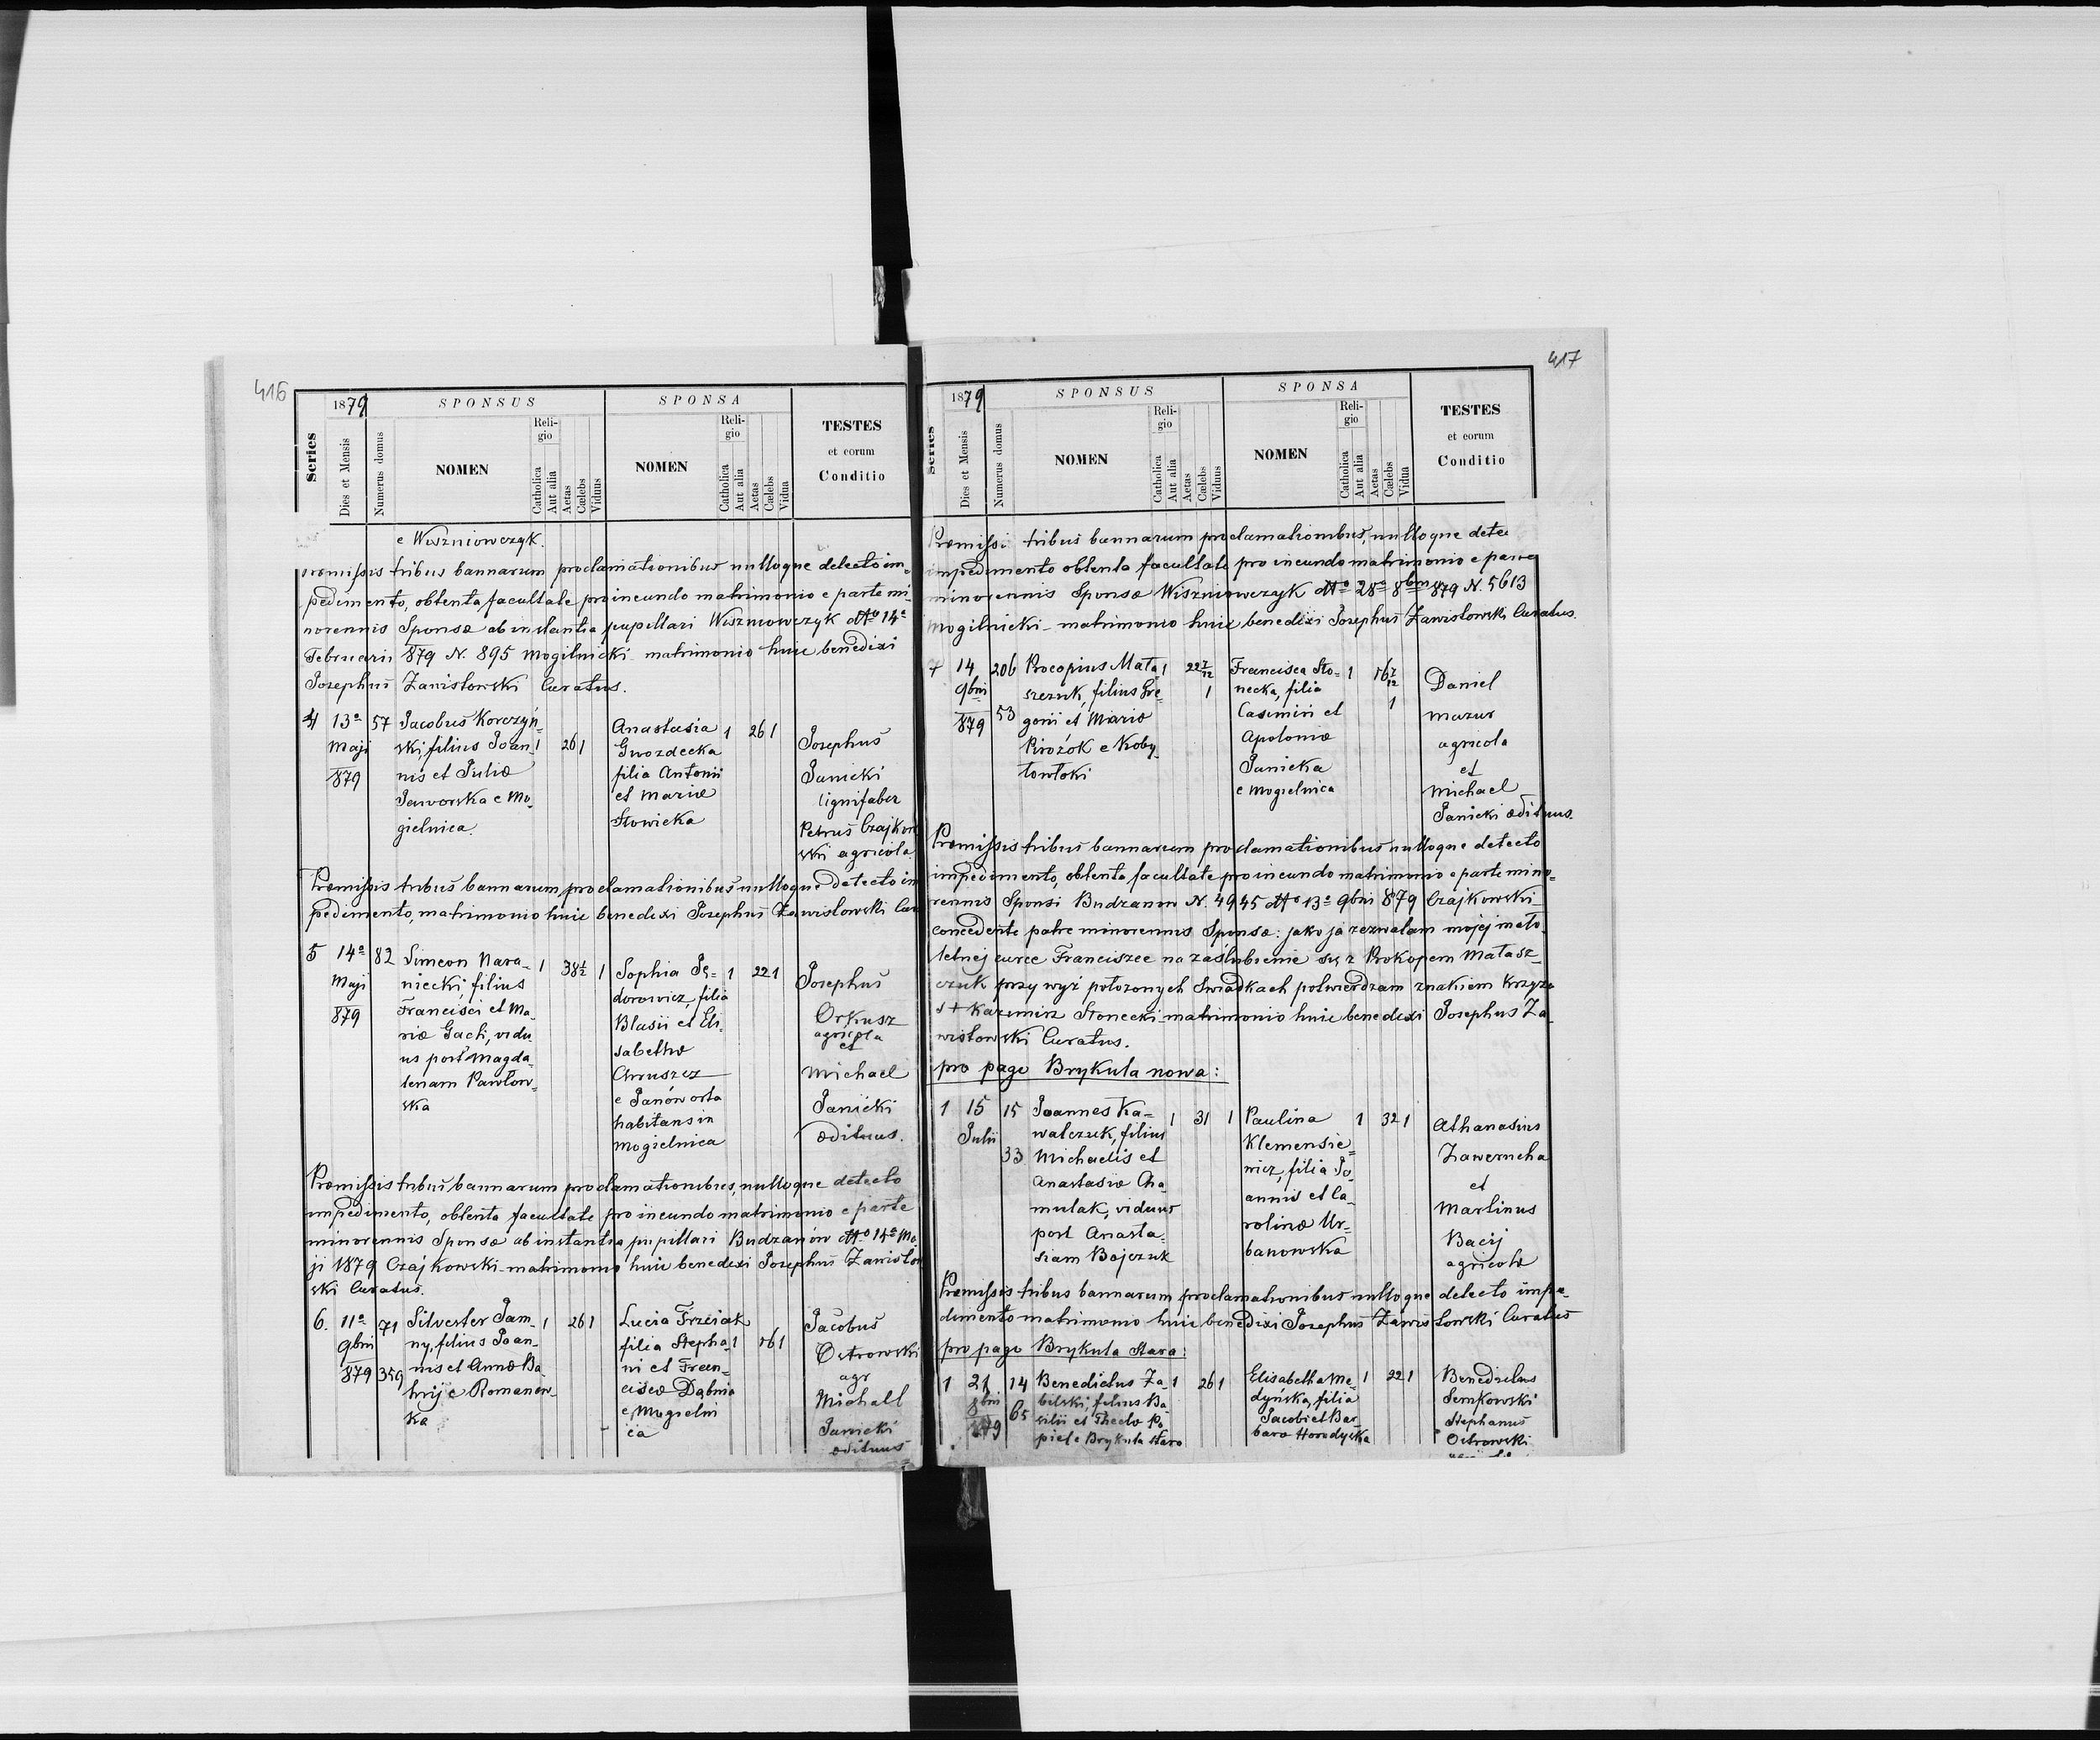 416
1879
SPONSUS
SPONSA
TESTES
et eorum
Conditio
Series
Dies et Mensis
Numerus domus
NOMEN
Religio
Catholica
Aut alia
Aetas
Cælebs
Viduus
NOMEN
Religio
Catholica
Aut alia
Aetas
Cælebs
Vidua
e Wiszniowczyk.
tribus bannarum proclamationibus nulloque detecto im-
pedimento, obtenta facultate pro ineundo matrimonio e parte mi-
norennis Sponsæ ab instantia pupillari Wiszniowczyk dtto 14a
Februarii 879 N. 895 Mogilnicki matrimonio huic benedixi
Josephus Zawisłowski Curatus.
4 13a Maji 879 57
Jacobus Korczyń-
ski, filius Joan- 1 26 1
nis et Juliæ
Jaworska e Mo-
gielnica.
Anastasia 1 26 1
Gwozdecka
filia Antonii
et Mariæ
Słowicka
Josephus
Janicki
lignifaber
Petrus Czajkow
ski agricola
Præmissis tribus bannarum proclamationibus nulloque detecto im
pedimento, matrimonio huic benedixi Josephus Zawisłowski Cur
5 14a Maji 879 82
Simeon Nara- 1 38½ 1
niecki, filius
Francisci et Ma-
riæ Gach, vidu-
us post Magda-
lenam Pawłow-
ska
Sophia 1 22 1
dorowicz filia
Blasii et Eli-
sabethæ
Chruszcz
e Janów orta
habitans in
Mogielnica
Josephus
Orkusz
agricola
et
Michael
Janicki
ædituus.
Præmissis tribus bannarum proclamationibus, nulloque detecto
impedimento, obtenta facultate pro ineundo matrimonio e parte
minorennis Sponsæ ab instantia pupillari Budzanów dtto 14a Ma-
ji 1879 Czajkowski matrimonio huic benedixi Josephus Zawisłow
ski Curatus.
6. 11a 9bris 879 71 359
Silvester Jam- 1 26 1
ny, filius Joan-
nis et Annæ Ba-
hrij e Romanow-
ka
Lucia Frzeiak
filia Stepha- 1 16 1
ni et Fran-
ciscæ Dąbnia
e Mogielni
ca
Jacobus
Ostrowski
agr
Michall
Janicki
ædituus
417
1879
SPONSUS
SPONSA
TESTES
et eorum
Conditio
Series
Dies et Mensis
Numerus domus
NOMEN
Religio
Catholica
Aut alia
Aetas
Cælebs
Viduus
NOMEN
Religio
Catholica
Aut alia
Aetas
Cælebs
Vidua
Præmissi tribus bannarum proclamationibus, nulloque dete
impedimento obtenta facultate pro ineundo matrimonio e parte
minorennis Sponsæ Wiszniowczyk dtto 28a 8bris 879 N. 5613
Mogilnicki matrimonio huic benedixi Josephus Zawisłowski Curatus.
7 14 9bris 879 206 53
Procopius Mała- 1 22 7/12 1
szczuk, filius Gre-
gorii et Mariæ
Pirożok e Koby-
łowłoki
Francisca Sło- 1 16 7/12 1
necka, filia
Casimiri et
Apoloniæ
Janicka
e Mogielnica
Daniel
Mazur
agricola
et
Michael
Janicki ædituus.
Præmissis tribus bannarum proclamationibus nulloque detecto
impedimento, obtenta facultate pro ineundo matrimonio e parte mino-
rennis Sponsi Budzanow N. 4945 dtto 13a 9bris 879 Czajkowski
concedente patre minorennis Sponsæ: jako ja zezwalam mojej mało-
letniej curce Franciszce na zaślubienie się z Prokopem Małasz-
czuk przy wyż położonych Świadkach potwierdzam znakiem krzyża
s + Kazimirz Słonecki matrimonio huic benedixi Josephus Za-
wisłowski Curatus.
pro pago Brykula nowa:
1 15 Julii 15 33
Joannes Ka- 1 31 1
walczuk, filius
Michaelis et
Anastasiæ Cha-
mulak, viduus
post Anasta-
siam Bojczuk
Paulina 1 32 1
Klemensie-
wicz, filia Jo-
annis et Ca-
rolinæ Ur-
banowska
Athanasius
Zawerucha
et
Martinus
Bacij
agricolæ
Præmissis tribus bannarum proclamationibus nulloque detecto impe-
dimento matrimonio huic benedixi Josephus Zawisłowski Curatus
pro pago Brykula Stara:
1 21 8bris 879 14 65
Benedictus Za- 1 26 1
bilski, filius Ba-
silii et Theclæ Po
piel e Brykula stara
Elisabetha Me- 1 22 1
dyńska, filia
Jacobi et Bar-
baræ Horodyska
Benedictus
Semkowski
Stephanus
Ostrowski